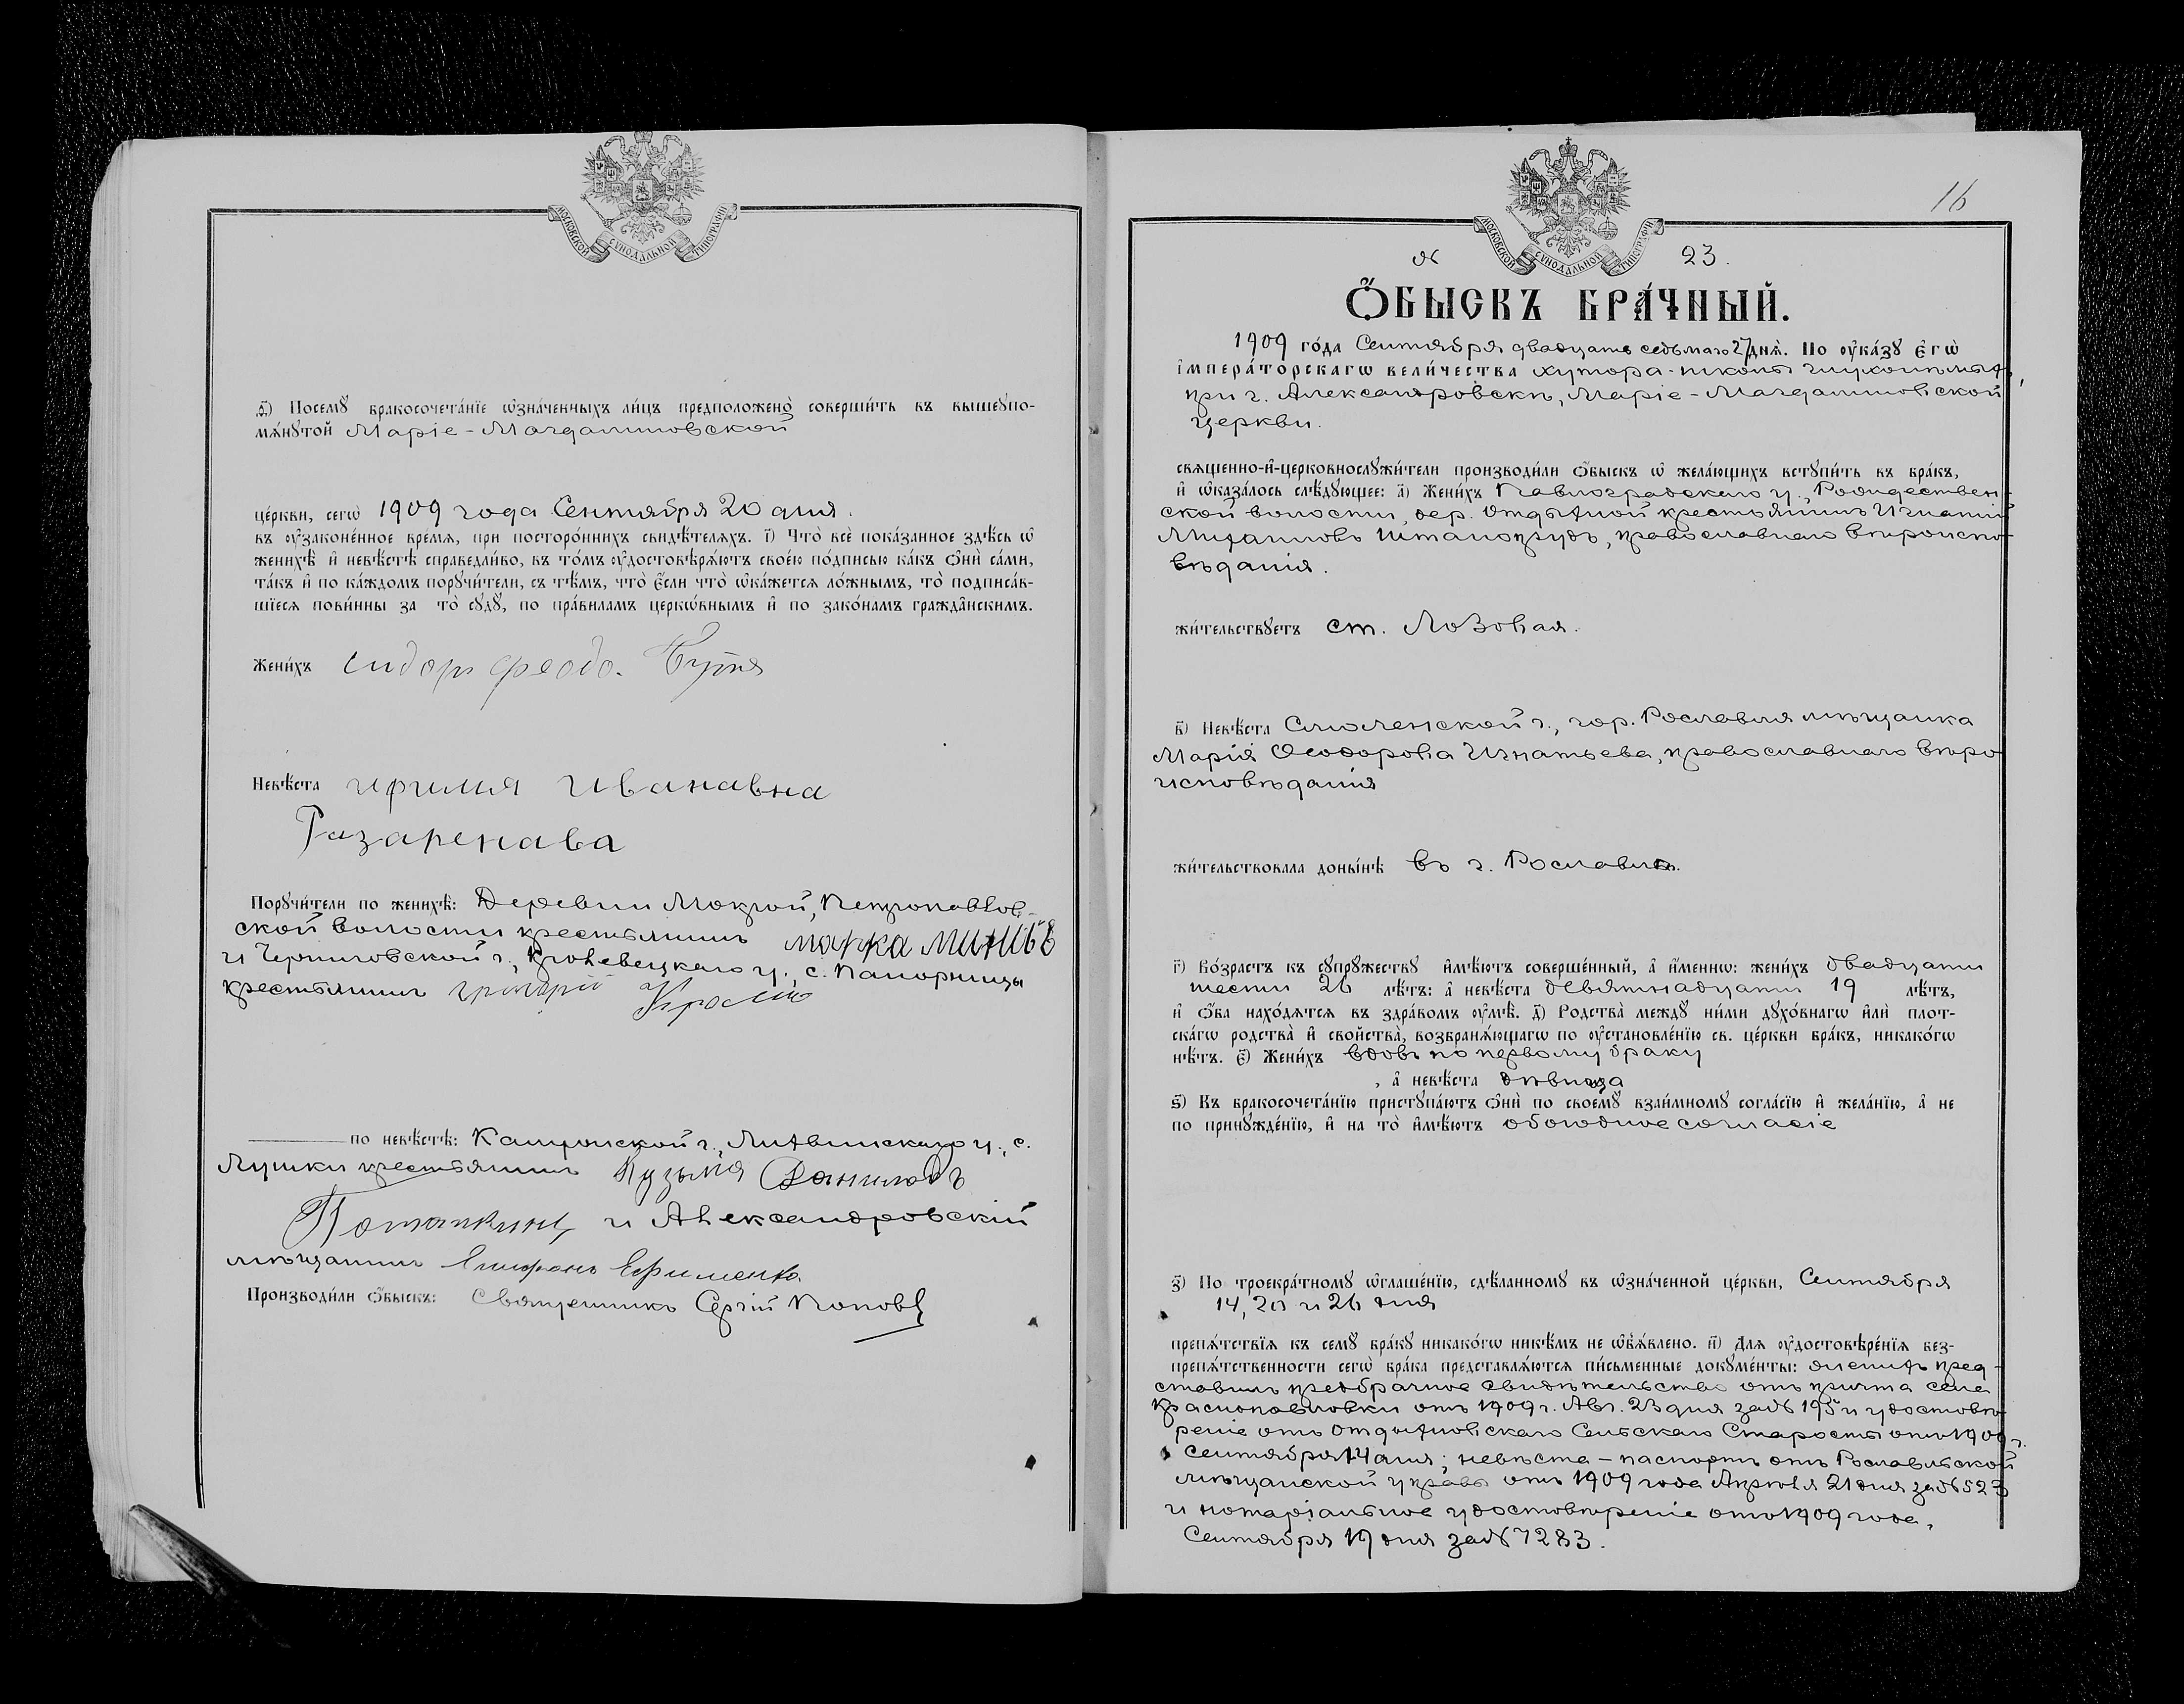 МОСКОВСКОЙ СѴНОДАЛЬНОЙ ТИПОГРАФІИ
д҃) Посемꙋ бракосочета́нїе ѡ҆зна́ченныхъ ли́цъ предположено̀ соверши́ть въ вышеꙋпо-
мѧ́нꙋтой Маріе-Магдалиновской
це́ркви, сегѡ̀ 1909 года Сентября 20 дня.
въ ᲂу҆законе́нное вре́мѧ, при посторо́ннихъ свидѣ́телѧхъ. і҃) Что̀ всѐ пока́занное здѣ́сь ѡ҆
женихѣ̀ и҆ невѣ́стѣ справедли́во, въ то́мъ ᲂу҆достовѣрѧ́ютъ свое́ю по́дписью ка́къ ѻ҆нѝ са́ми,
та́къ и҆ по ка́ждомъ порꙋчи́тели, съ тѣ́мъ, что̀ є҆́сли что̀ ѡ҆ка́жетсѧ ло́жнымъ, то̀ подписа́в-
шїесѧ пови́нны за то̀ сꙋдꙋ̀, по пра́виламъ церкѡ́внымъ и҆ по зако́намъ гражда̑нскимъ.
Жени́хъ Сидоръ Феодо.
Невѣ́ста Ивановна
Разаренава
Порꙋчи́тели по женихѣ̀: Деревни Мокрой, Петропавлов-
ской волости крестьянинъ марка
и Черниговской г., Кролевецкаго у., с. Понорницы
крестьянинъ григорій
по невѣ́стѣ: у., с.
крестьянинъ Кузьма Даниловъ
Потапкинъ и Александровскій
мѣщанинъ Ефименко
Производи́ли ѻ҆́быскъ: Священникъ Сергій Поповъ
16
МОСКОВСКОЙ СѴНОДАЛЬНОЙ ТИПОГРАФІИ
№ 23.
Ѻ҆́БЫСКЪ БРА́ЧНЫЙ.
1909 го́да Сентября двадцать седьмаго 27 днѧ̀. По ᲂу҆ка́зꙋ Є҆гѡ̀
і҆мпера́торскагѡ вели́чества хутора-школы глухонѣмыхъ,
при г. Александровскѣ, Маріе-Магдалиновской
церкви.
свѧщенно-и҆-церковнослꙋжи́тели производи́ли ѻ҆́быскъ ѡ҆ жела́ющихъ встꙋпи́ть въ бра́къ,
и҆ ѡ҆каза́лось слѣ́дꙋющее: а҃) Жени́хъ Павлоградскаго у., Рождествен-
ской волости, дер. Отдыхной крестьянинъ Игнатій
Михаиловъ Штанопрудъ, православнаго вѣроиспо-
вѣданія.
жи́тельствꙋетъ ст. Лозовая.
в҃) Невѣ́ста Смоленской г., гор. Рославля мѣщанка
Марія Ѳеодорова Игнатьева, православнаго вѣро
исповѣданія
жи́тельствовала доны́нѣ въ г. Рославлѣ.
г҃) Во́зрастъ къ сꙋпрꙋ́жествꙋ и҆мѣ́ютъ соверше́нный, а҆ и҆́меннѡ: жени́хъ двадцати
шести 26 лѣ́тъ: а҆ невѣ́ста девятнадцати 19 лѣ́тъ,
и҆ ѻ҆́ба нахо́дѧтсѧ въ здра́вомъ ᲂу҆мѣ̀. д҃) Родства̀ междꙋ̀ ни́ми дꙋхо́внагѡ и҆лѝ плот-
ска́гѡ родства̀ и҆ свойства̀, возбранѧ́ющагѡ по ᲂу҆становле́нїю св. це́ркви бра́къ, никако́гѡ
нѣ́тъ. є҃) Жени́хъ вдовъ по первому браку
, а҆ невѣ́ста дѣвица
ѕ҃) Къ бракосочета́нїю пристꙋпа́ютъ ѻ҆нѝ по своемꙋ̀ взаи́мномꙋ согла́сїю и҆ жела́нїю, а҆ не
по принꙋжде́нїю, и҆ на то̀ и҆мѣ́ютъ обоюдное согласіе
з҃) По троекра́тномꙋ ѡ҆глаше́нїю, сдѣ́ланномꙋ въ ѡ҆зна́ченной це́ркви, Сентября
14, 20 и 26 дня
препѧ́тствїѧ къ семꙋ̀ бра́кꙋ никако́гѡ никѣ́мъ не ѡ҆б̾ѧ́влено. и҃) Длѧ ᲂу҆достовѣре́нїѧ без-
препѧ́тственности сегѡ̀ бра́ка представлѧ́ютсѧ пи́сьменные докꙋме́нты: женихъ пред-
ставилъ предбрачное свидѣтельство отъ причта села
Краснопавловки отъ 1909 г. Авг. 23 дня за № 195 и удостовѣ-
реніе отъ Отдыхновскаго Сельскаго Старосты отъ 1909 г.
Сентября 14 дня; невѣста – паспортъ отъ Рославльской
мѣщанской управы отъ 1909 года Апрѣля 21 дня за № 523
и нотаріальное удостовѣреніе отъ 1909 года,
Сентября 19 дня за № 7283.